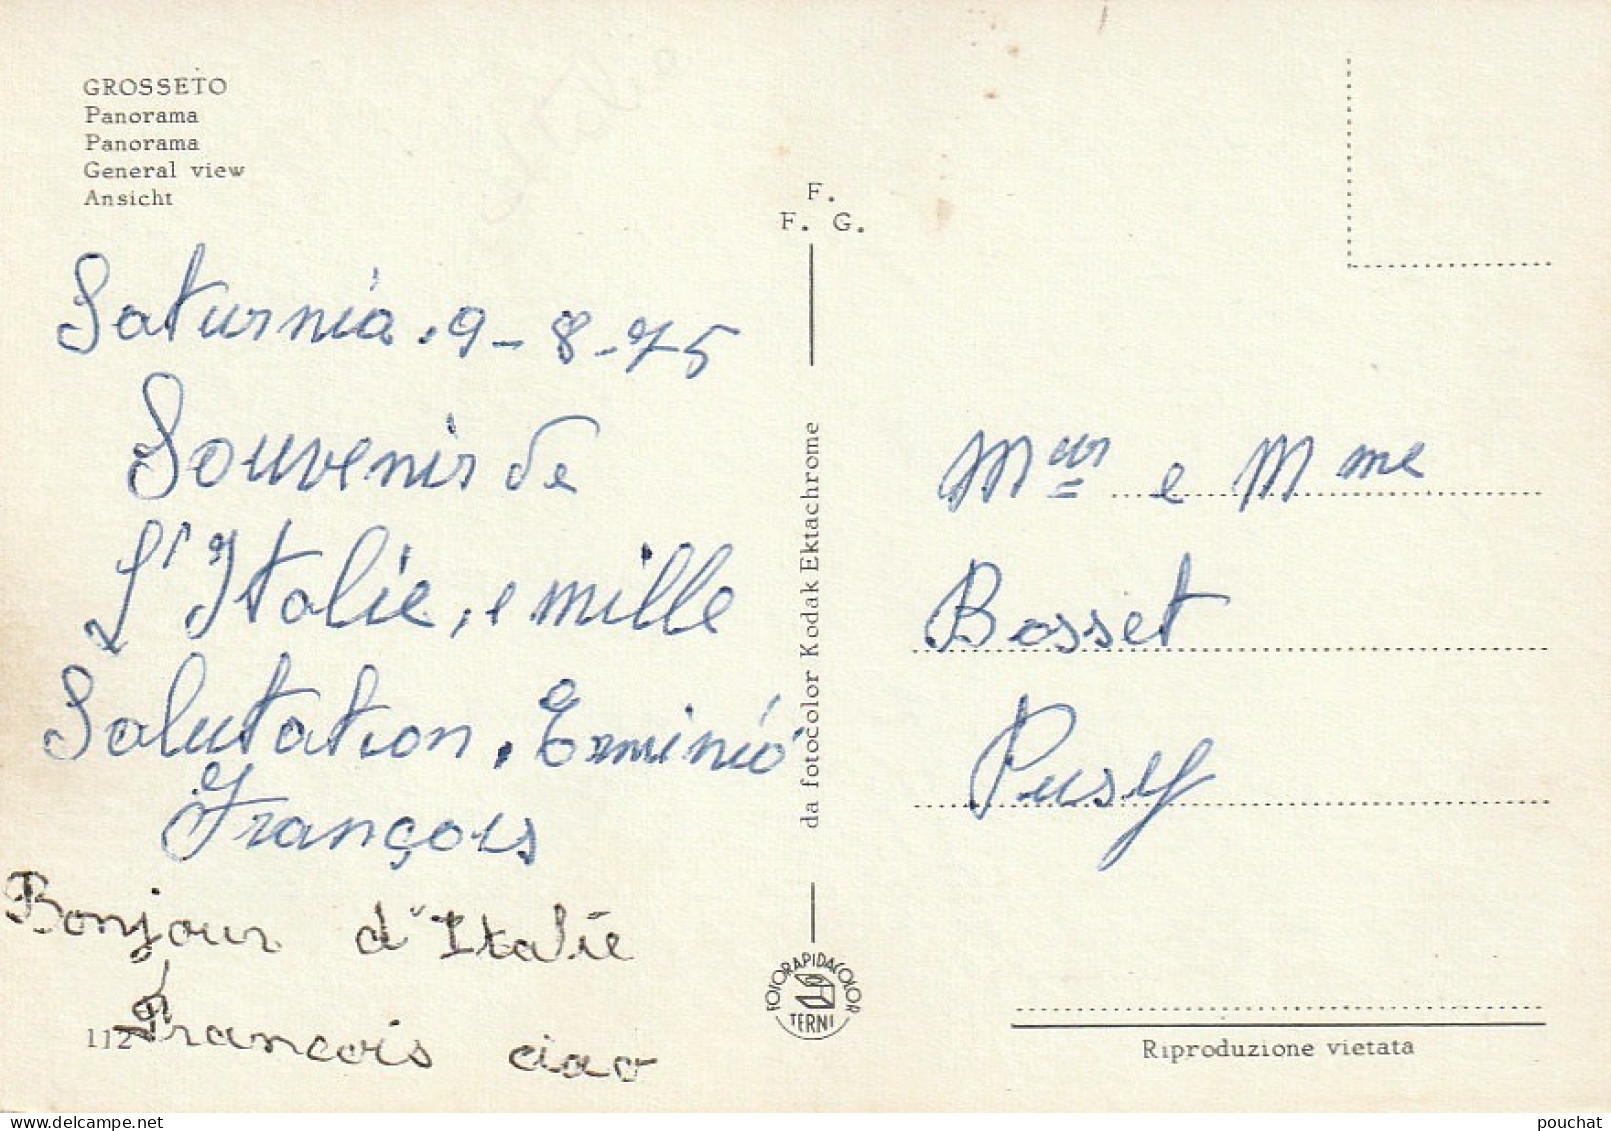 GROSSETO
Panorama
Panorama
General view
Ansicht
Saturnia. 9-8-75
Souvenir de
l'Italie, e mille
Salutation. Erminio
François
Bonjour d'Italie
Francois ciao
112
F.
F. G.
da fotocolor Kodak Ektachrome
FOTORAPIDACOLOR
TERNI
Meur e Mme
Bosset
Pusy
Riproduzione vietata
pouchat